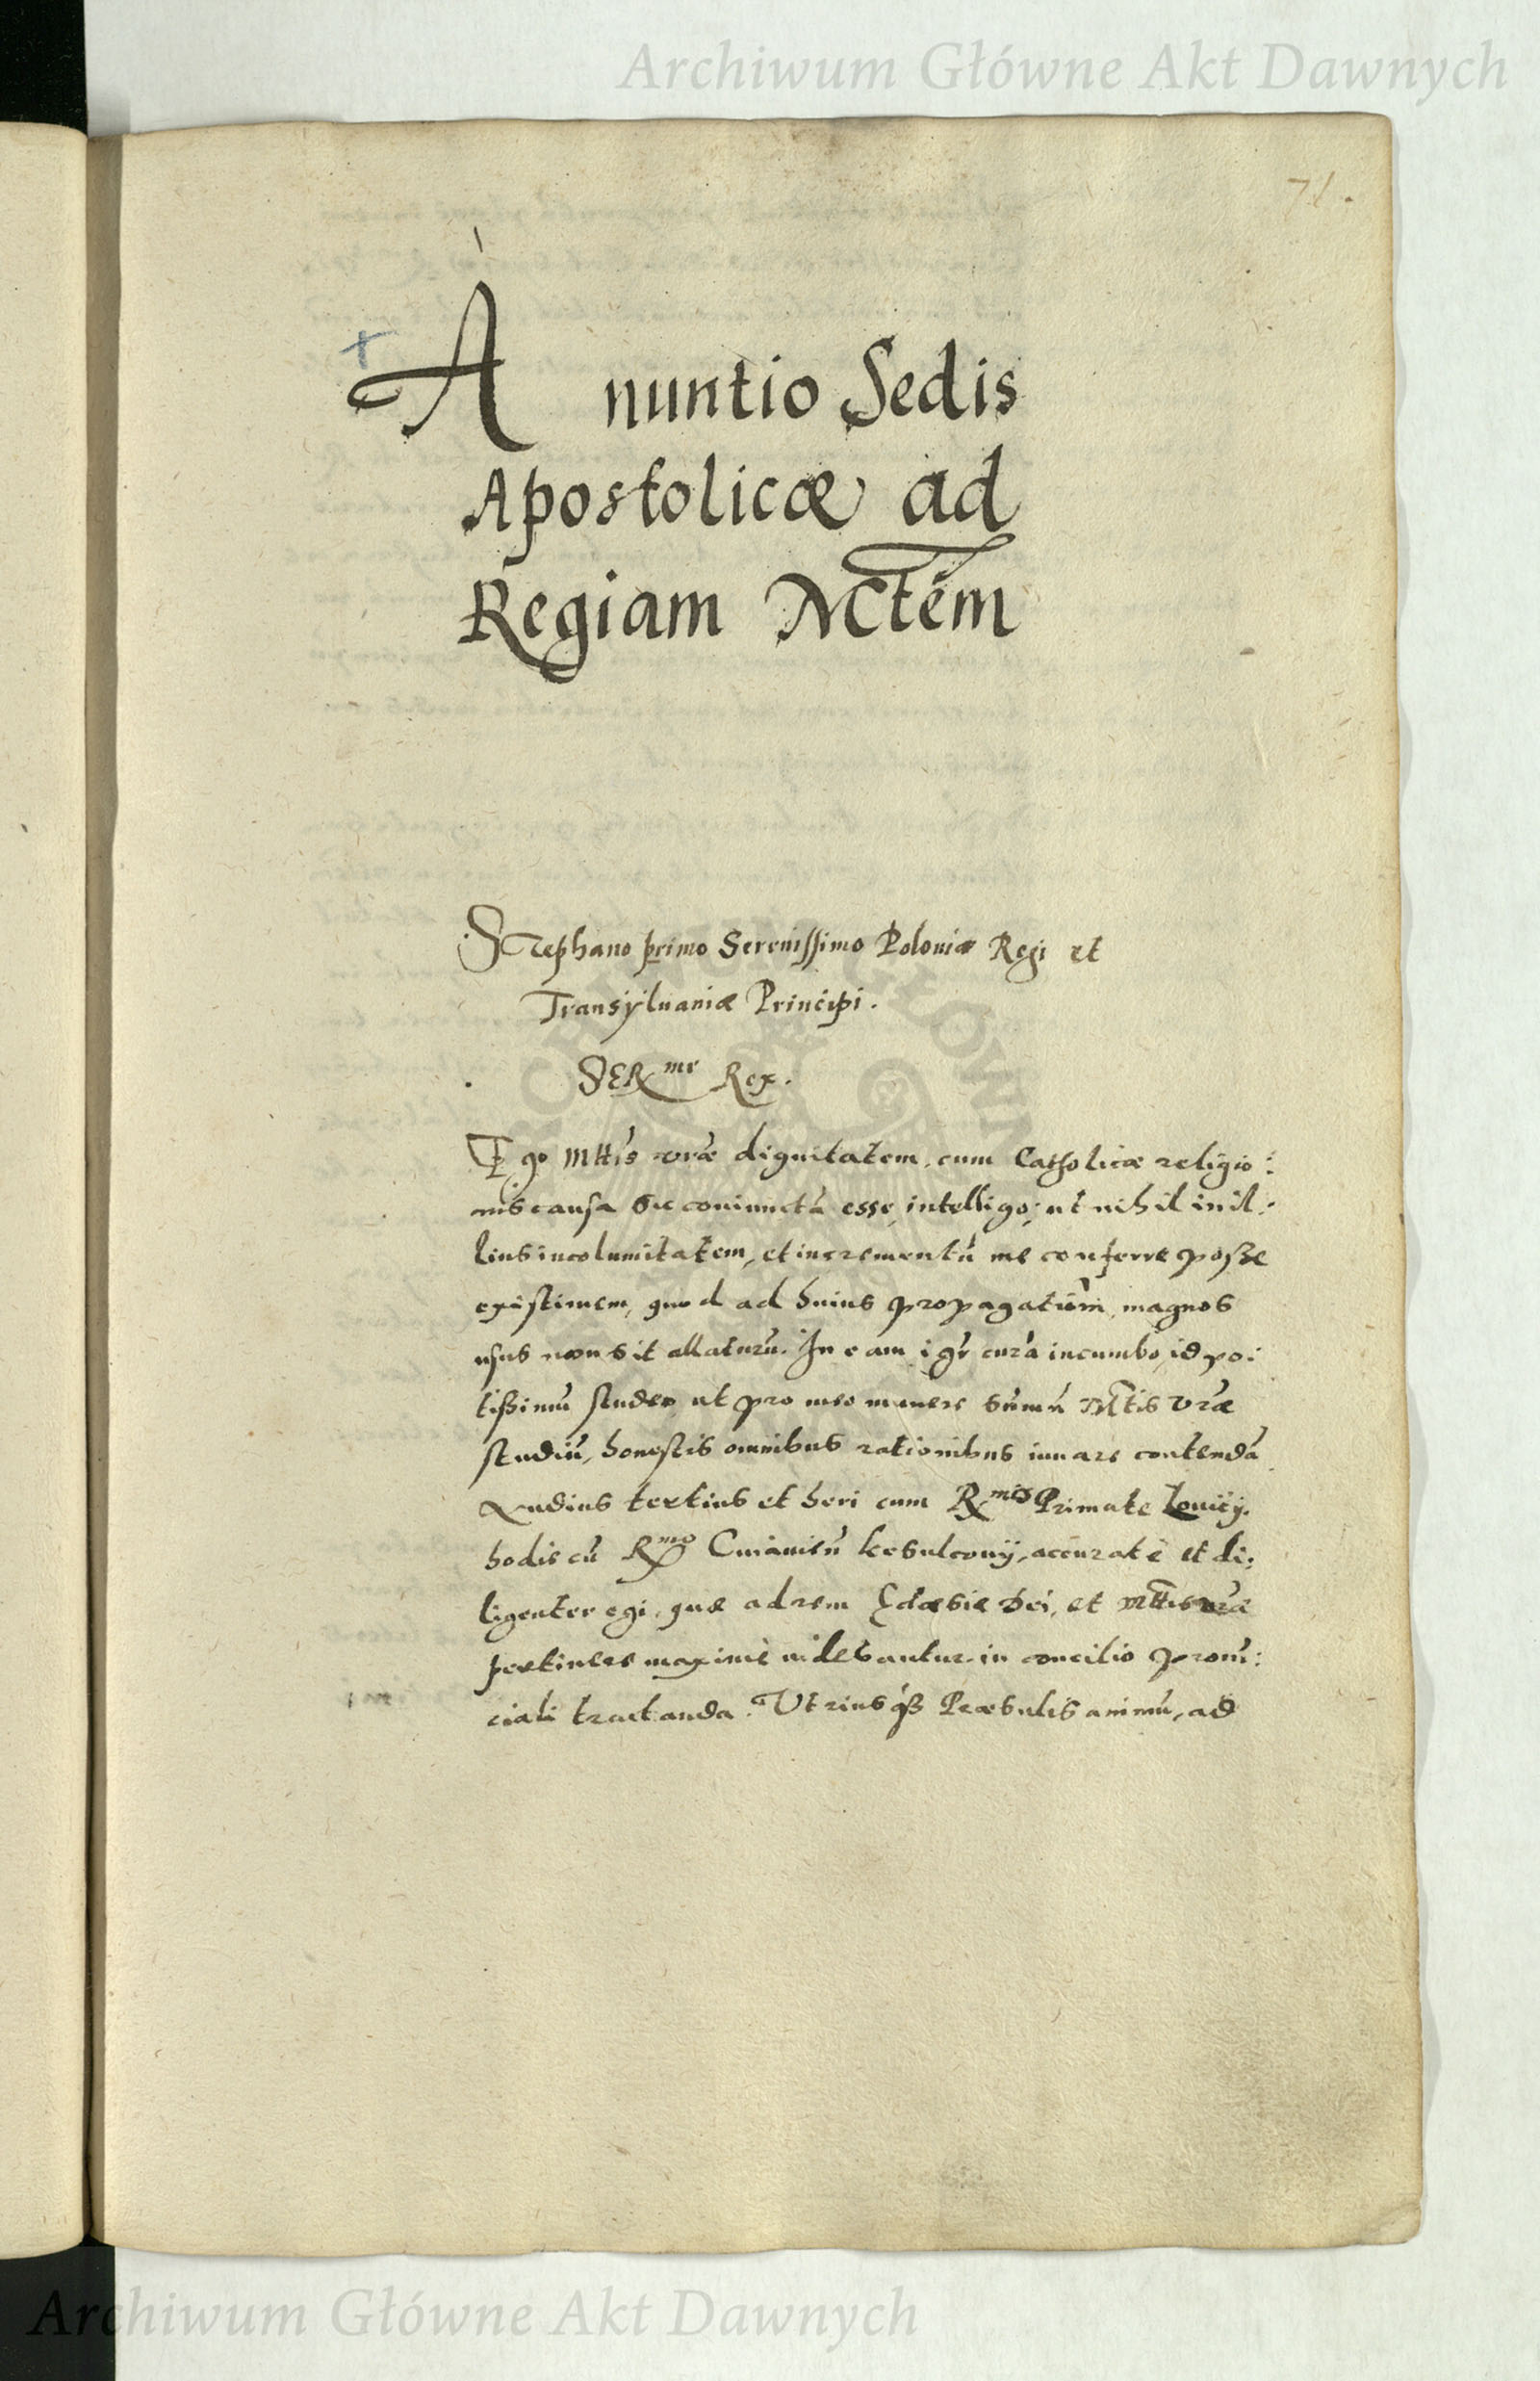 Archiwum Główne Akt Dawnych
71.
A nuntio Sedis
Apostolicæ ad
Regiam Mctem
Stephano primo Serenissimo Poloniæ Regi et
Transyluaniæ Principi.
SERme Rex.
Ego Mttis vræ dignitatem, cum Catholicæ religio:
nis causa sic coniunctā esse, intelligo; ut nihil in il:
lius incolumitatem, et incrementū me conferre posse
existimem, quod ad huius propagationem, magnos
usus non sit allaturū. In eam igr curā incumbo, id po:
tißimū studeo, ut pro meo munere sūmū Mtis Vræ
studiū, honestis omnibus rationibus iuuare contendā
Nudius tertius et heri cum Rmis Primate Louicij.
hodie cū Rmo Cuiauien̄ Vesulcouij, accuratè et di:
ligenter egi, quæ ad rem Ecclæsiæ Dei, et Mttis vræ
pertinere maximè uidebantur in concilio prouī:
ciali tractanda. Utriusqß Præsulis animū, ad
Archiwum Główne Akt Dawnych